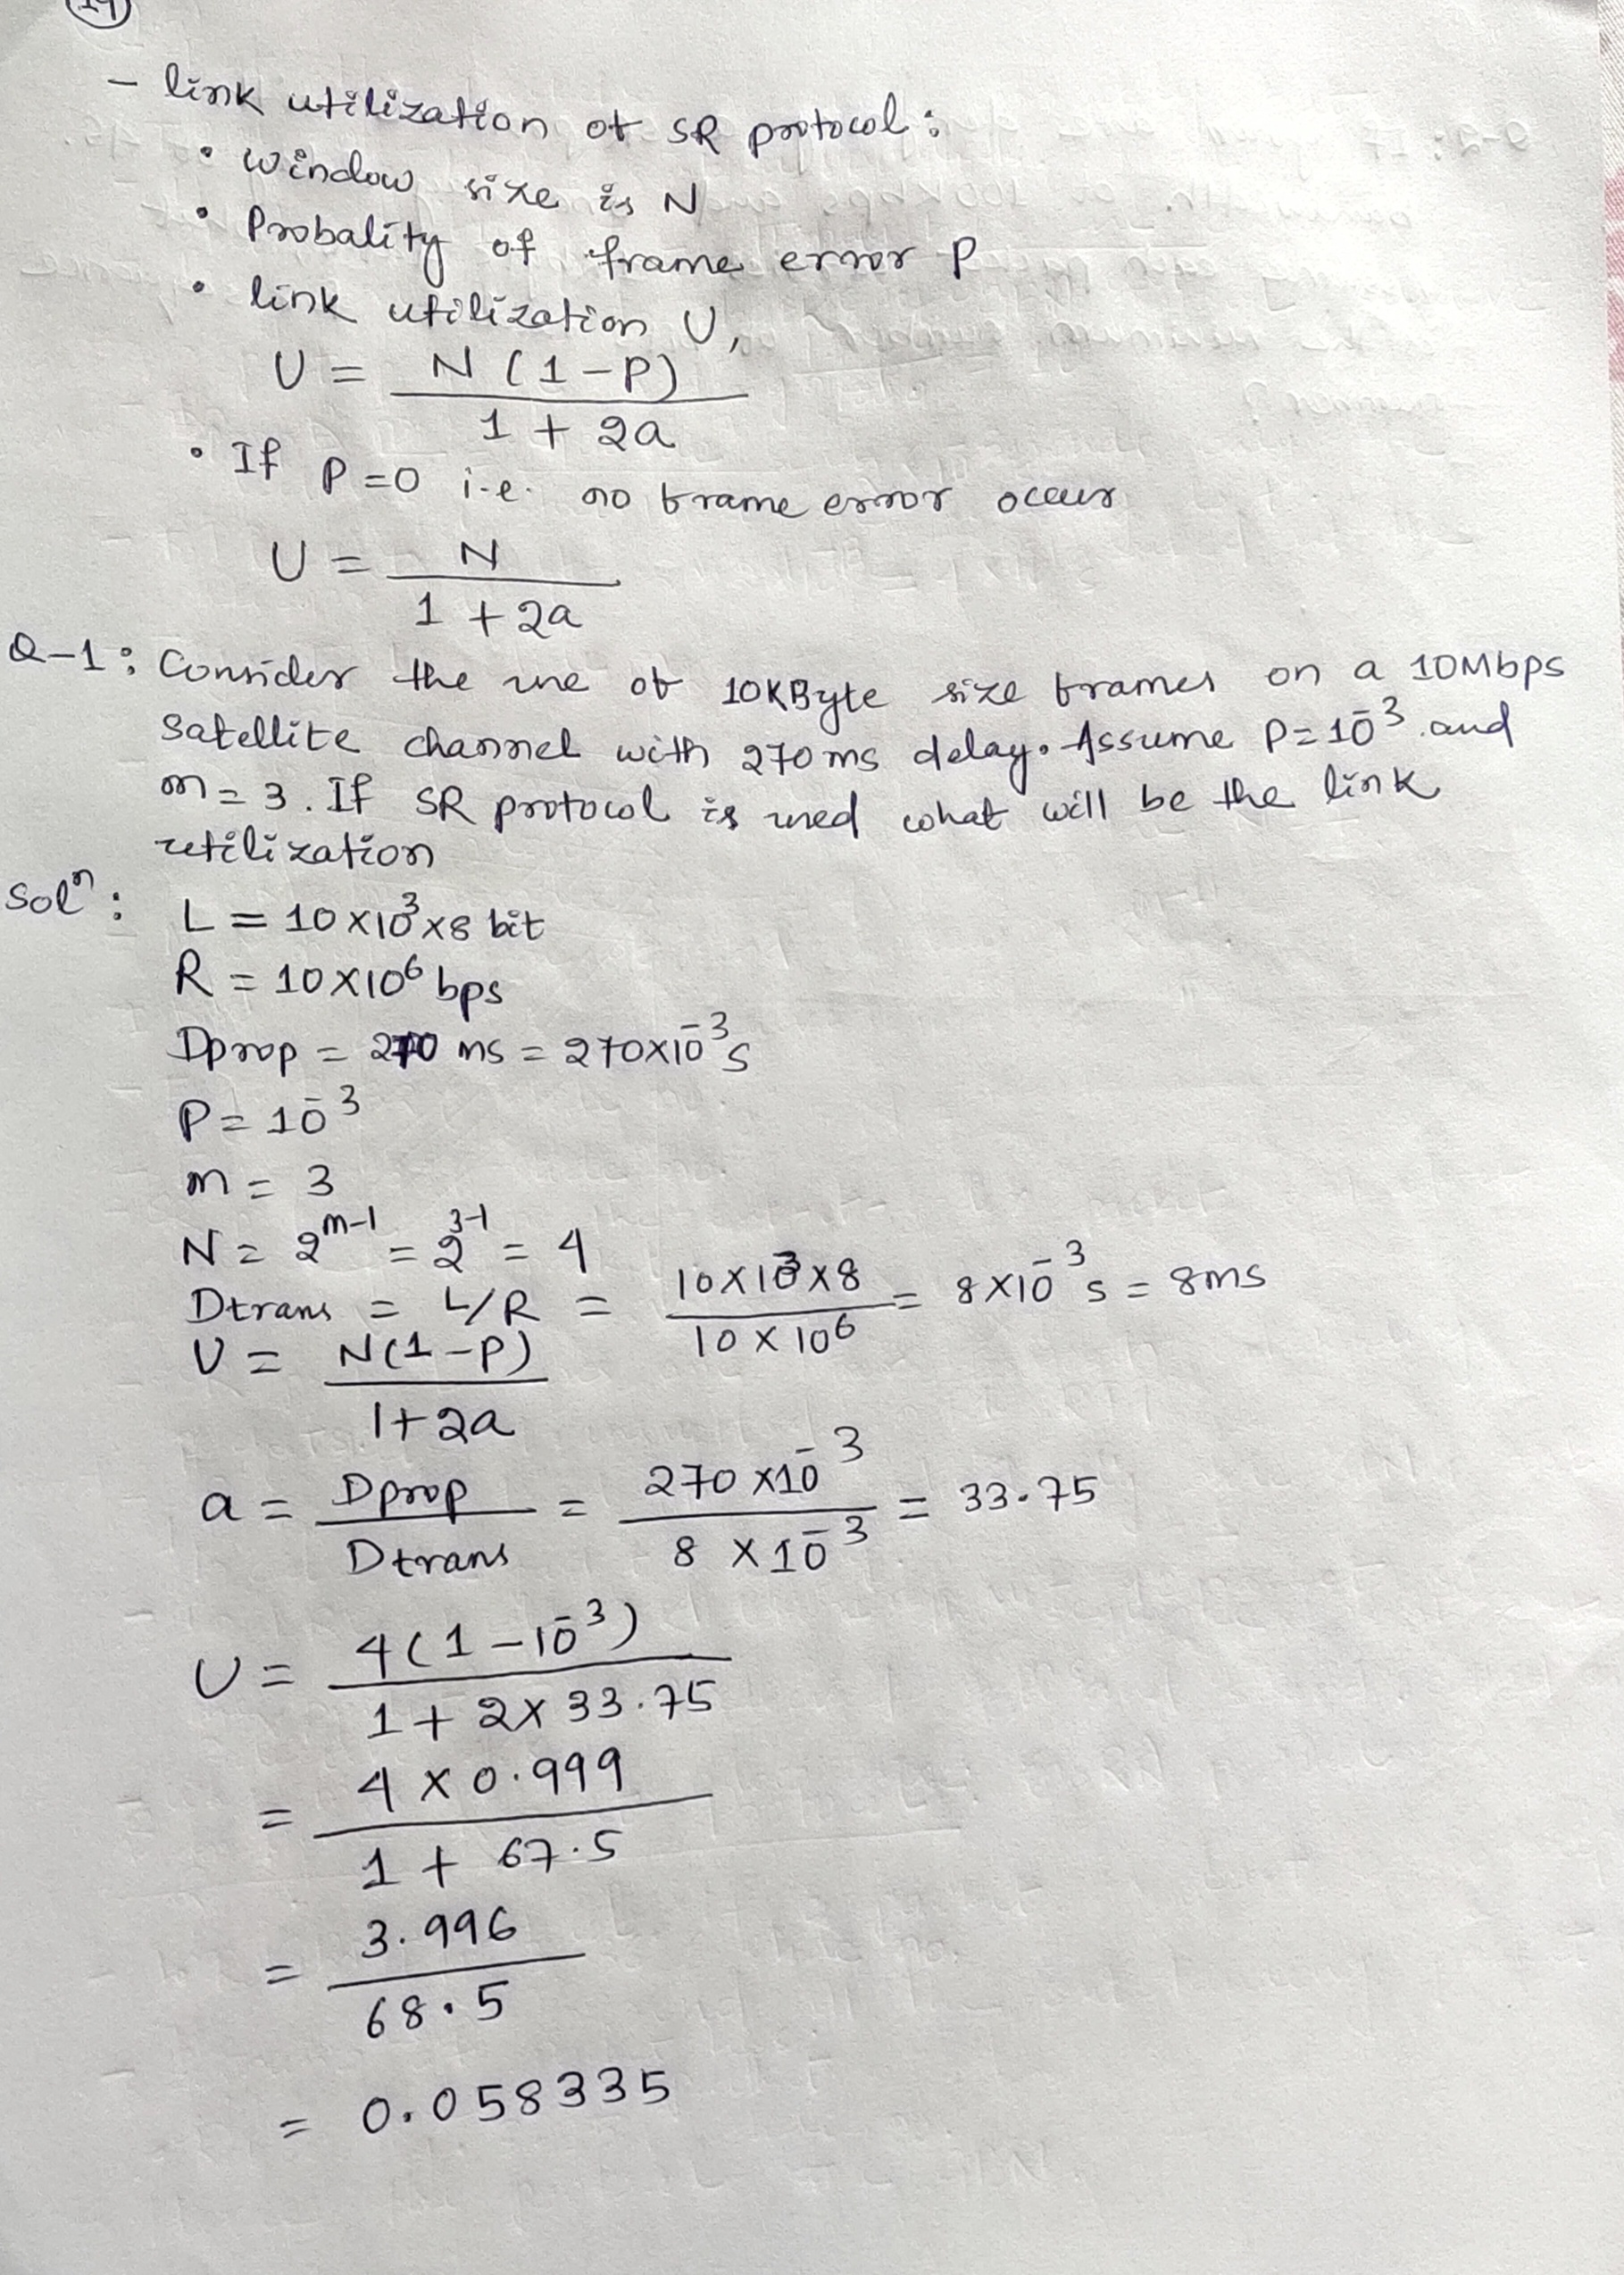 14
- link utilization of SR protocol:
• Window size is N
• Probality of frame error P
• link utilization U,
U = N(1-P) / 1+2a
• If P=0 i.e. no frame error occur
U = N / 1+2a
Q-1: Consider the use of 10KByte size frames on a 10Mbps
Satellite channel with 270ms delay. Assume P=10⁻³ and
m=3. If SR protocol is used what will be the link
utilization
Solⁿ: L = 10×10³×8 bit
R = 10×10⁶ bps
Dprop = 270 ms = 270×10⁻³s
P = 10⁻³
m = 3
N = 2^(m-1) = 2^(3-1) = 4
Dtrans = L/R = 10×10³×8 / 10×10⁶ = 8×10⁻³s = 8ms
U = N(1-P) / 1+2a
a = Dprop / Dtrans = 270×10⁻³ / 8×10⁻³ = 33.75
U = 4(1-10⁻³) / 1+2×33.75
= 4×0.999 / 1+67.5
= 3.996 / 68.5
= 0.058335